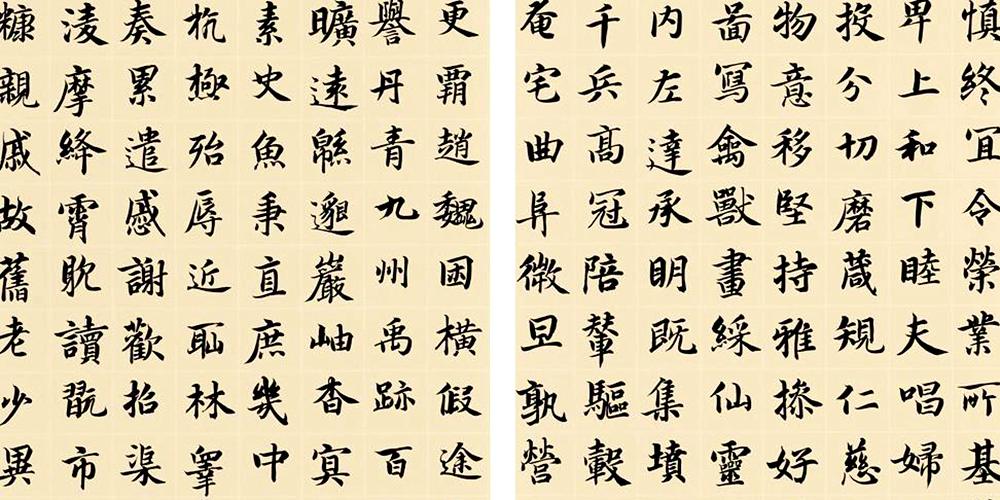 慎終宜令榮業所基
卑上和下睦夫唱婦
投分切磨葴規仁慈
物意移堅持雅操好
啚寫禽獸畫綵仙靈
内左達承明既集墳
千兵高冠陪輦驅轂
奄宅曲阜微旦孰營
更霸趙魏困橫假途
譽丹青九州禹跡百
曠遠緜邈巖岫杳冥
素史魚秉直庶幾中
杭極殆辱近恥林睾
奏累遣慼謝歡招渠
淩摩絳霄耽讀翫市
糠親戚故舊老少異